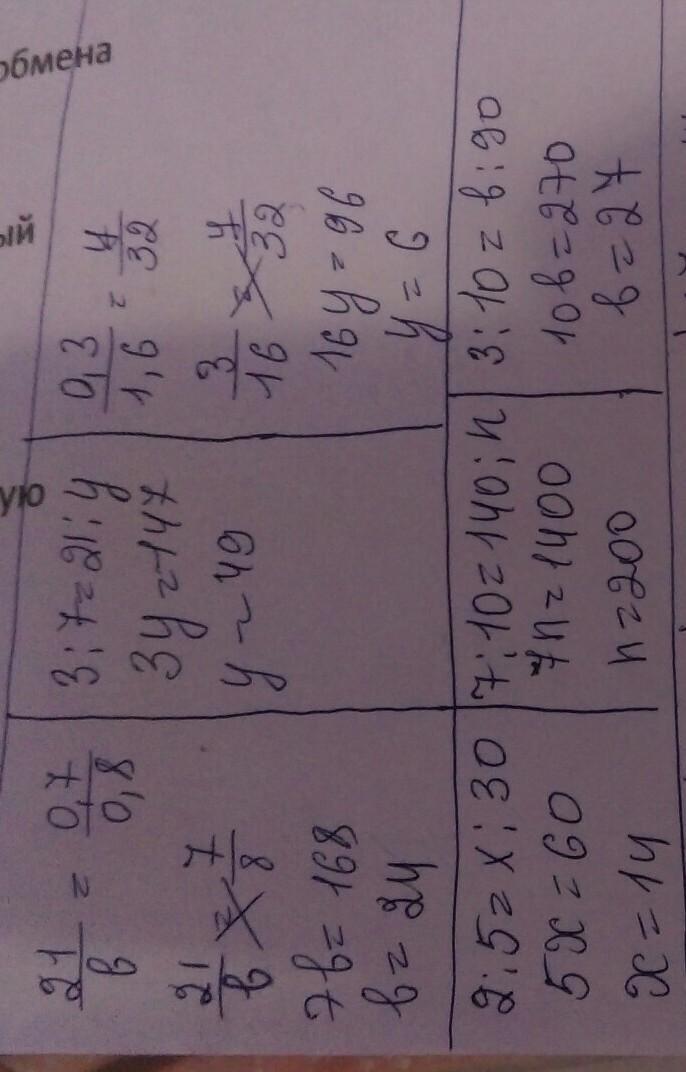 ую
ый
обмена
21/в = 0,7/0,8
21/в = 7/8
7в = 168
в = 24
3:7=21:y
3y=147
y=49
0,3/1,6 = y/32
3/16 = y/32
16y = 96
y = 6
2:5=x:30
5x=60
x=14
7:10=140:n
7n=1400
n=200
3:10=в:90
10в=270
в=27